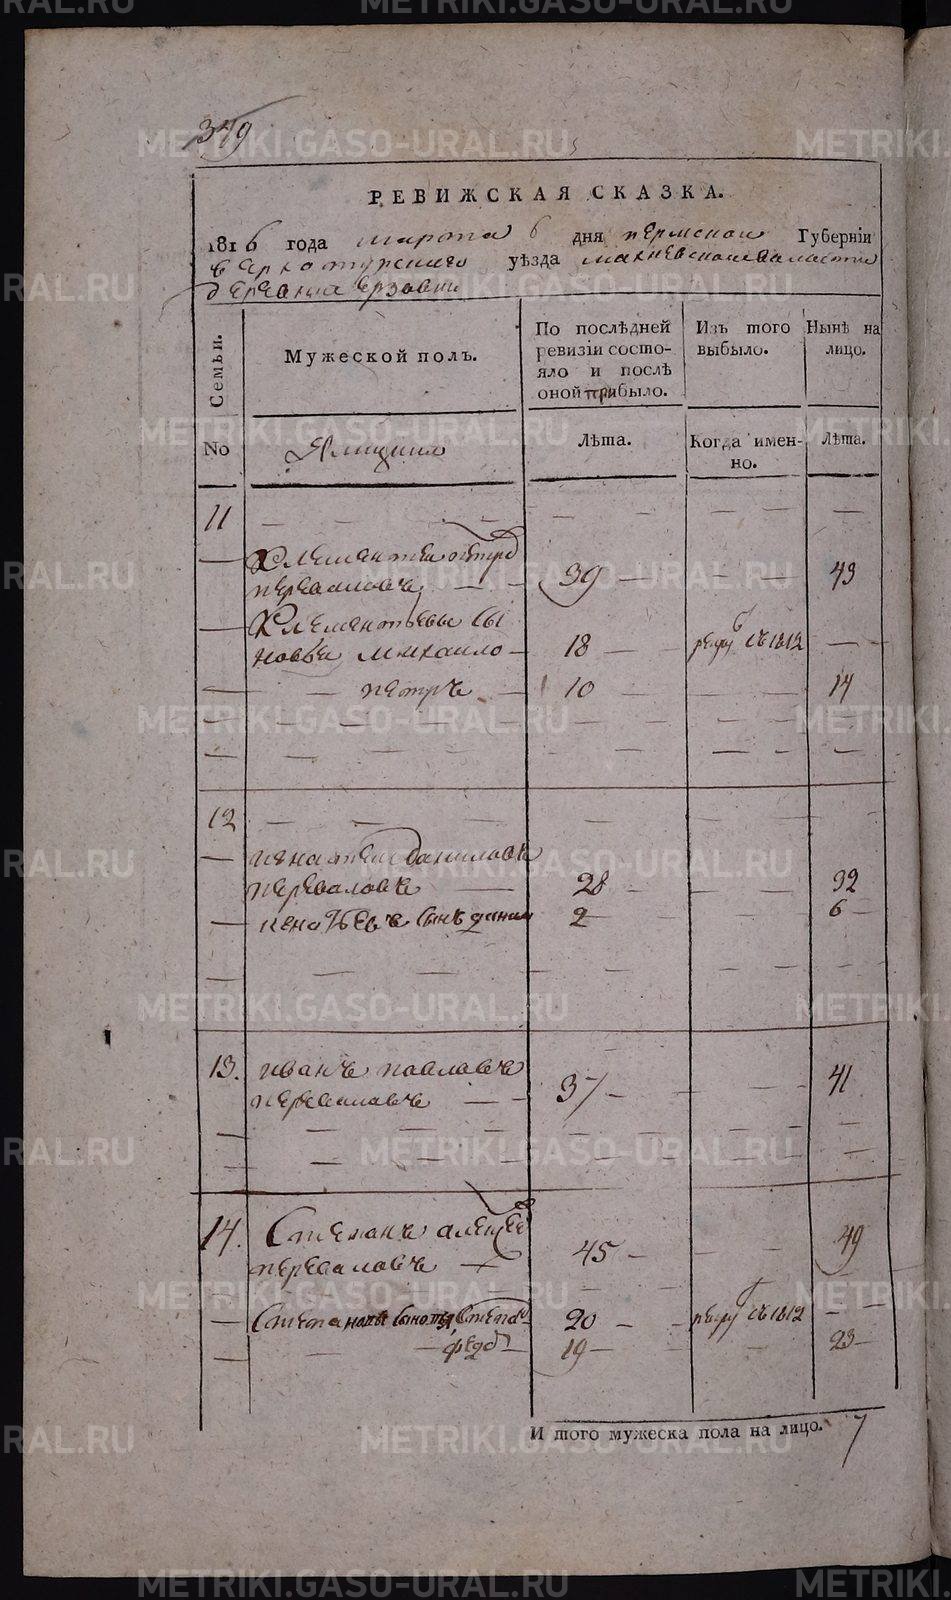 349
РЕВИЖСКАЯ СКАЗКА.
1816 года марта 6 дня пермской Губерніи
верхотурскаго уѣзда махневской валасти
деревни ерзовки
Семьи.
Мужеской полъ.
По послѣдней ревизіи состояло и послѣ оной прибыло.
Изъ того выбыло.
Нынѣ на лицо.
No
Ямщики
Лѣта.
Когда имен-но.
Лѣта.
11
Клементеи петро
переваловъ 39 43
Клементьевы сы
новья Михаило 18 рекру въ 1812
петръ 10 14
12
игнатеи даниловъ
переваловъ 28 32
игнатьевъ сынъ 2 6
13. иванъ павловъ
переваловъ 37 41
14. Степанъ алексеев
переваловъ 45 49
Степановы 20 рекру въ 1812
федо 19 23
И того мужеска пола на лицо. 7
METRIKI.GASO-URAL.RU